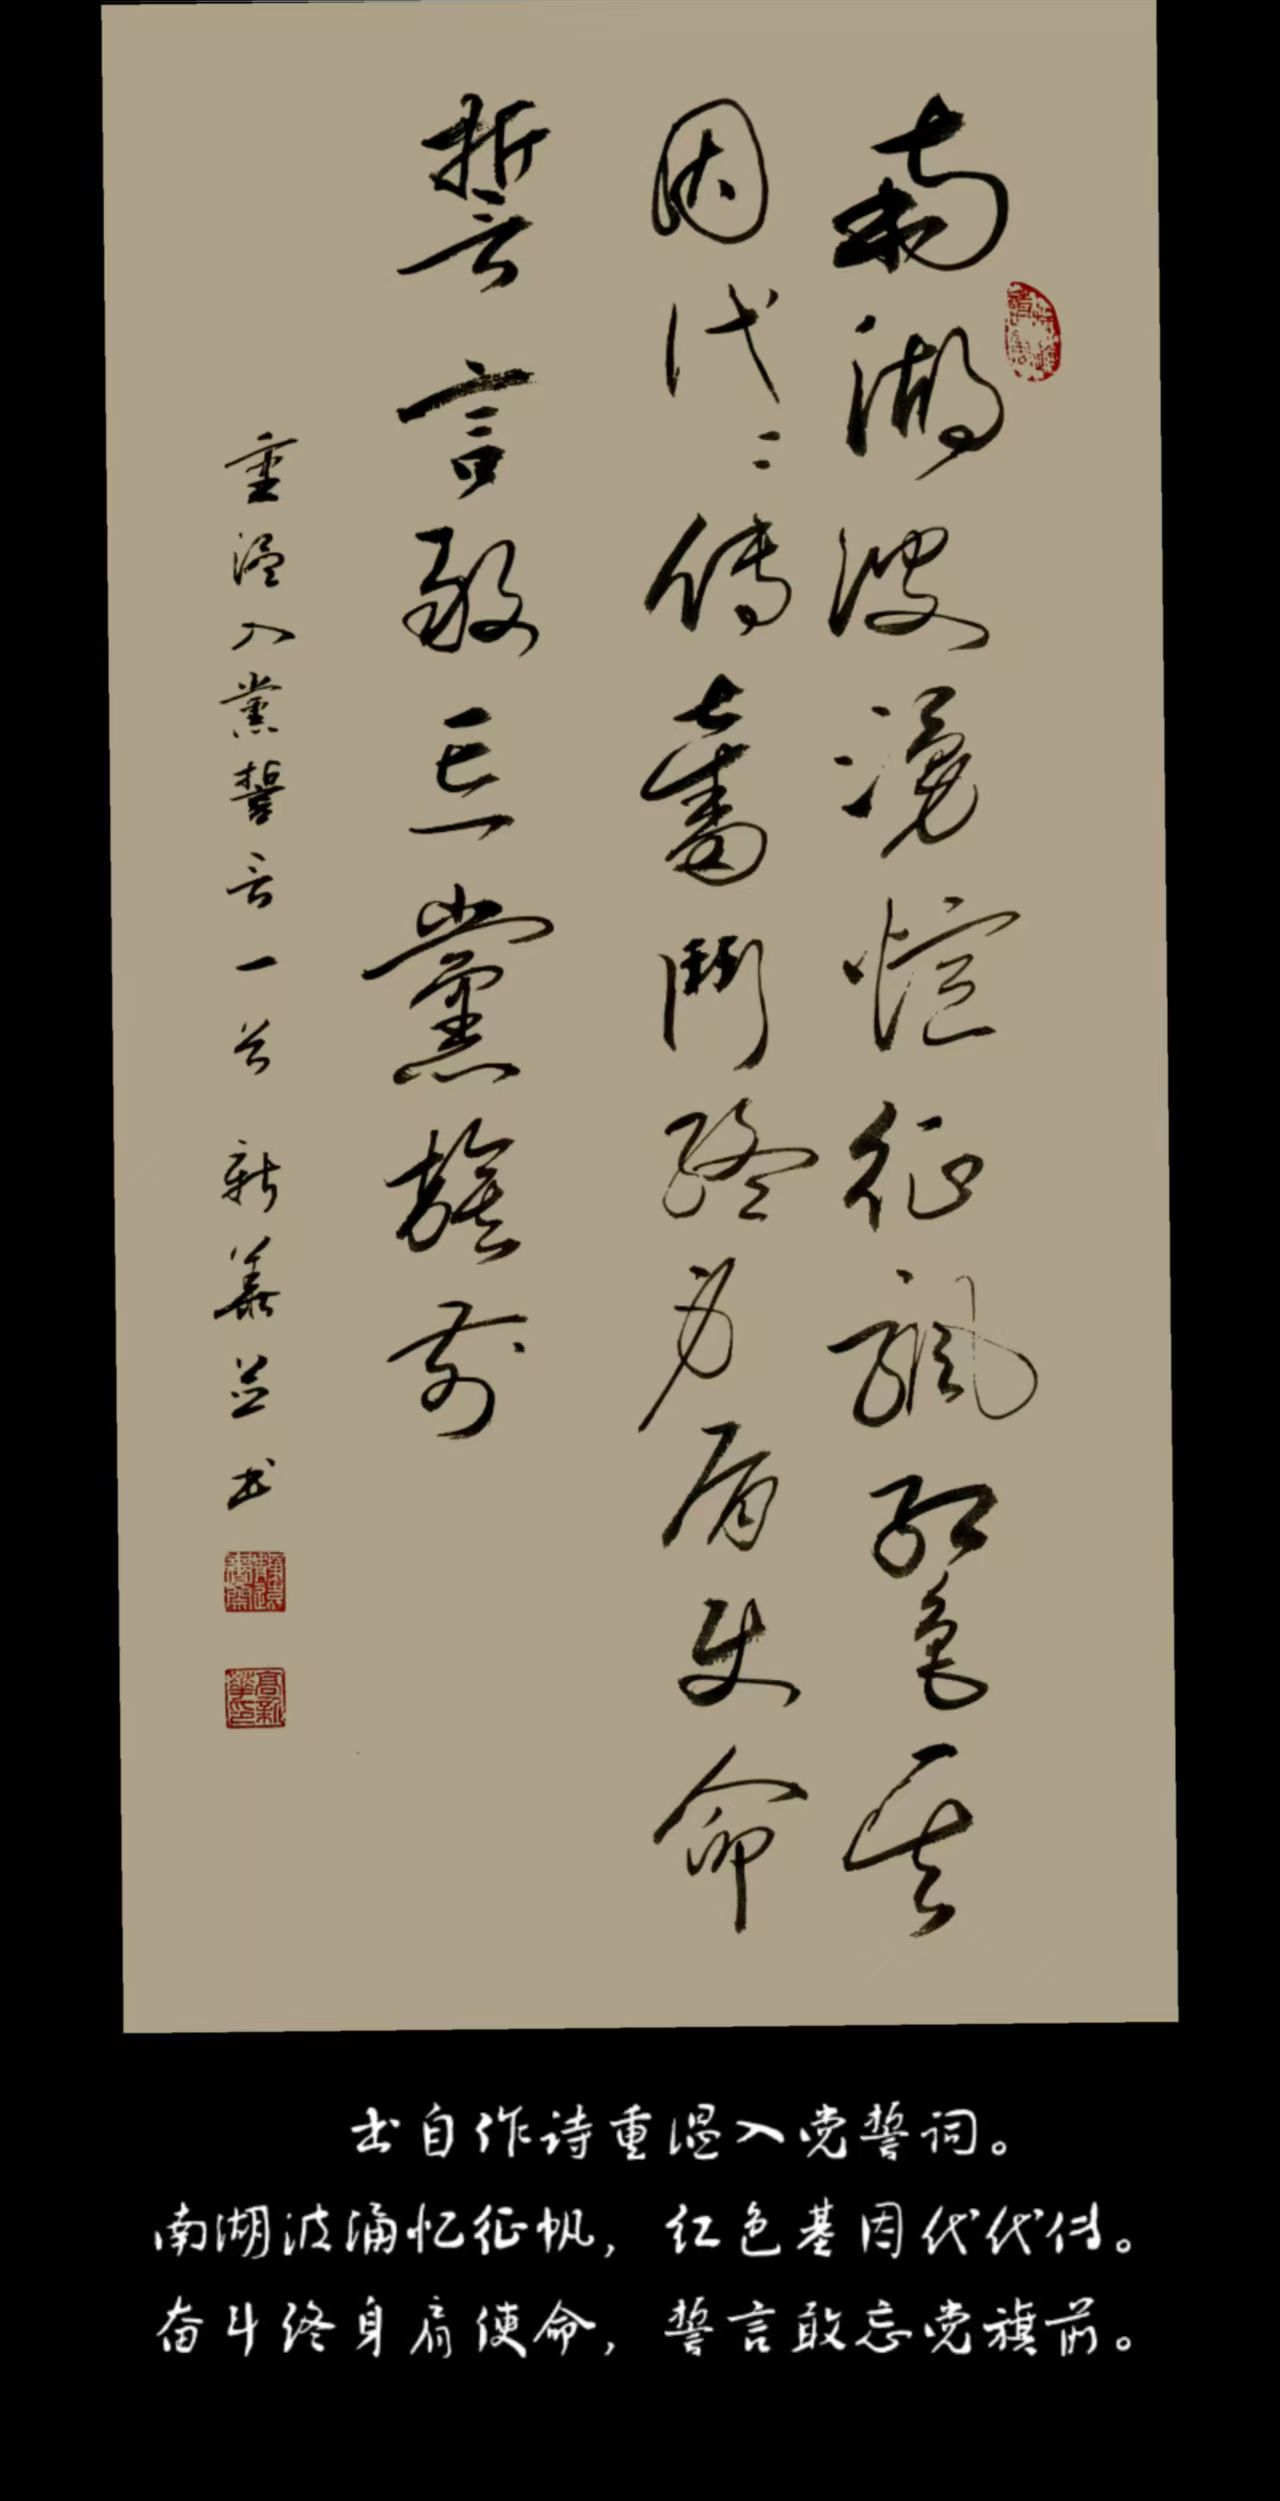 南湖波湧憶征帆紅色基
因代〻傳奮鬥終身肩使命
誓言敢忘黨旗前
重温入黨誓言一首 新華並书
高新華印
书自作诗重温入党誓词。
南湖波涌忆征帆，红色基因代代传。
奋斗终身肩使命，誓言敢忘党旗前。